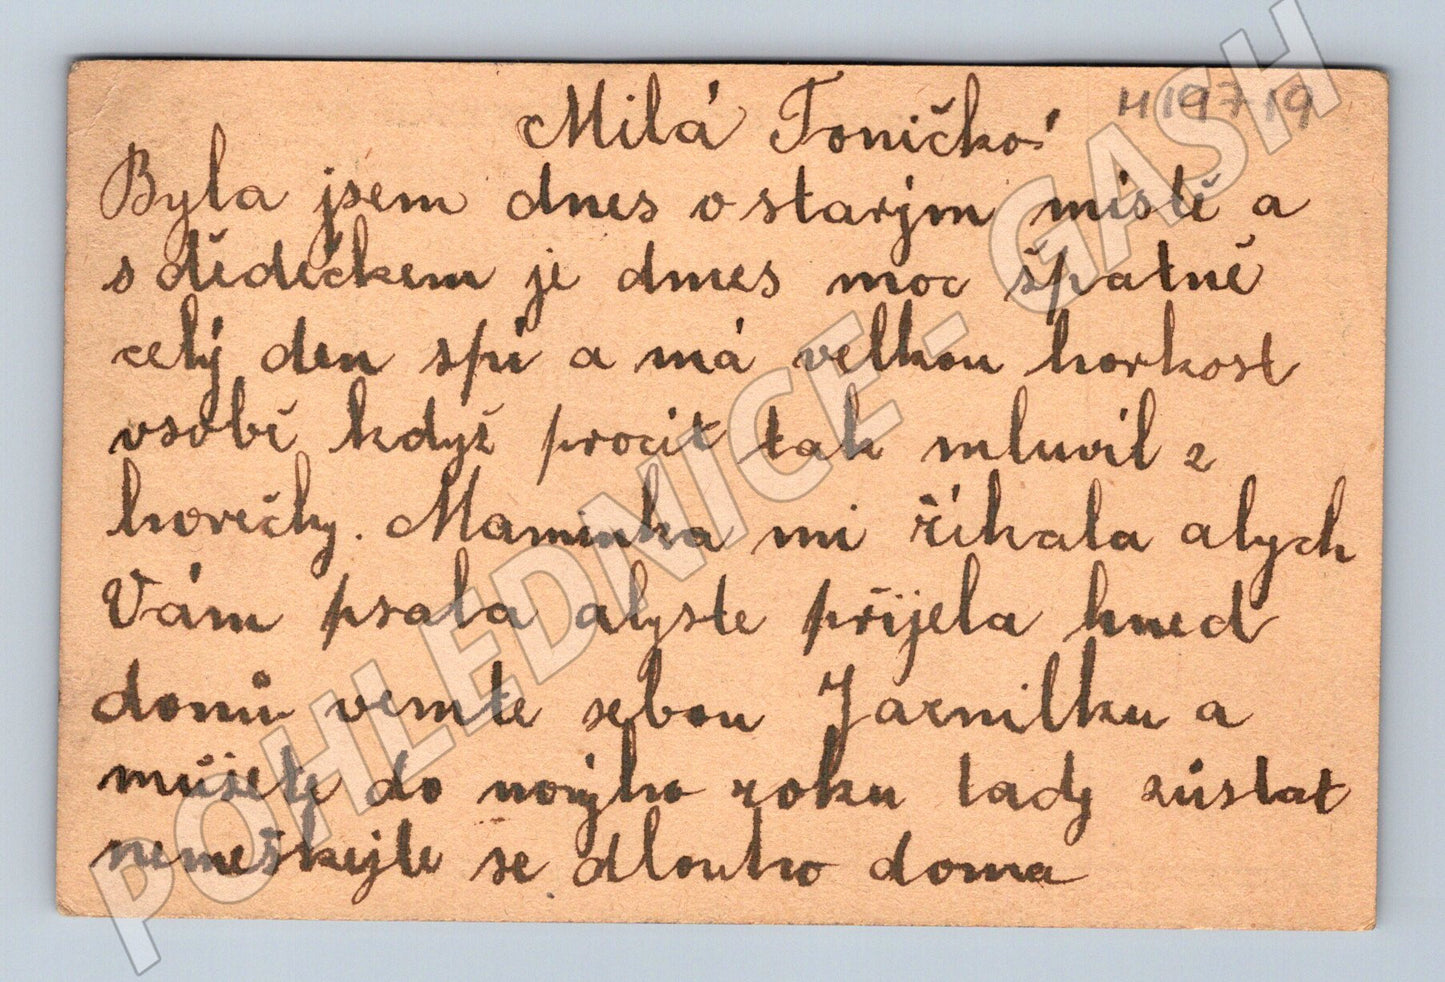 Milá Toničko!
H19719
Byla jsem dnes v starým místě a
s dědečkem je dnes moc špatně
celý den spí a má velkou horkost
vsobě když procit tak mluvil z
horečky. Maminka mi říkala abych
Vám psala abyste přijela hned
domů vemte sebou Jarmilku a
můžete do novýho roku tady zůstat
nemeškejte se dlouho doma
POHLEDNICE - GASH